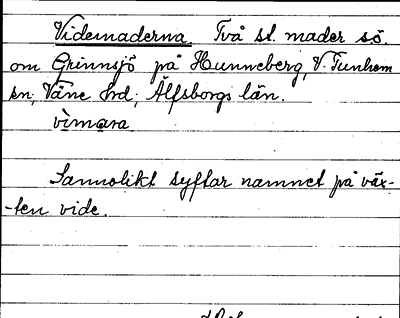 Videmaderna Två st. mader sö.
om Grinnsjö på Hunneberg, V. Tunhem
sn, Väne hrd, Älfsborgs län.
vìmara

Sannolikt syftar namnet på väx-
-ten vide.